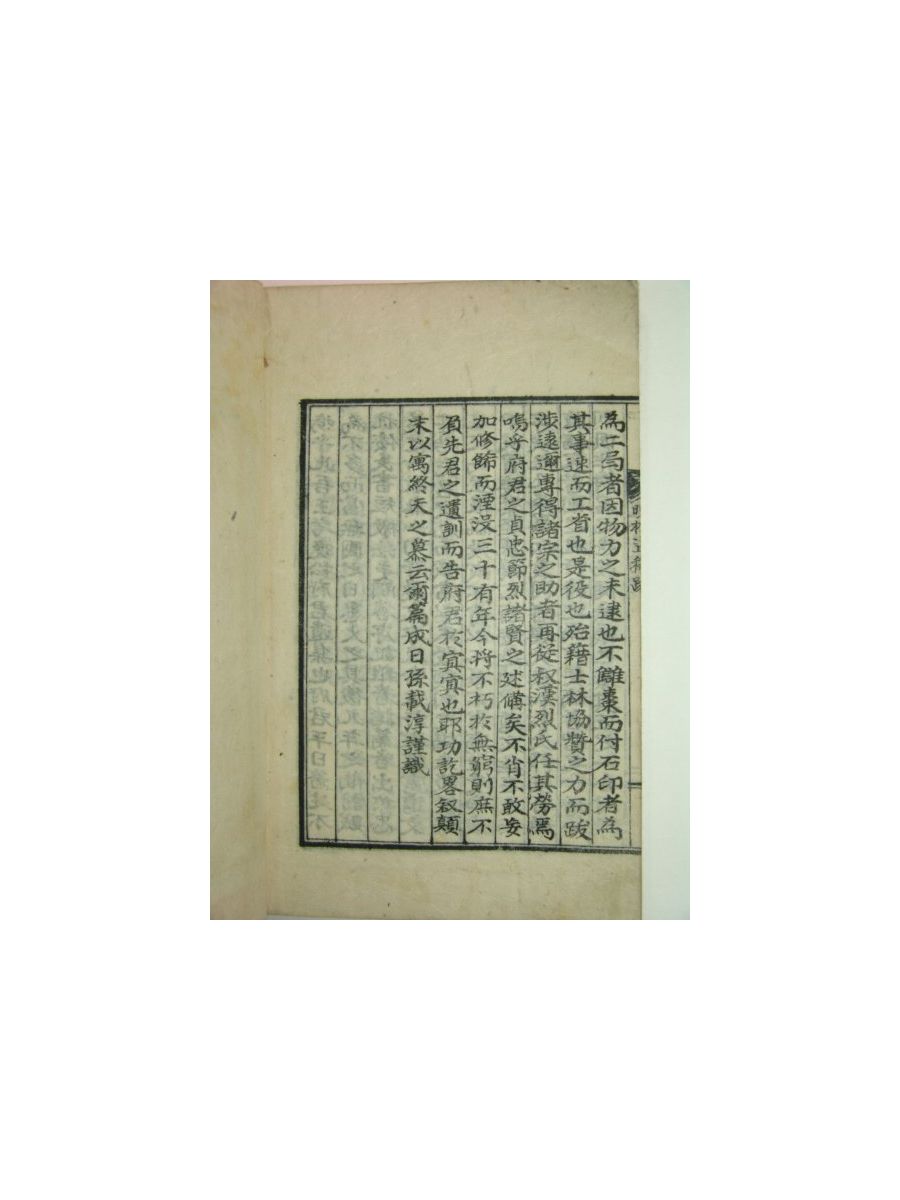 為二局者因物力之未逮也不雠棗而付石印者為
其事速而工省也是役也殆籍士林協贊之力而跋
涉遠邇專得諸宗之助者再從叔漢烈氏任其勞焉
嗚乎府君之貞忠節烈諸賢之述備矣不肖不敢妄
加修餙而湮没三十有年今將不朽於無窮則庶不
負先君之遺訓而告府君於冥冥也耶功訖畧叙顛
末以寓終天之慕云爾篇成日孫載淳謹識